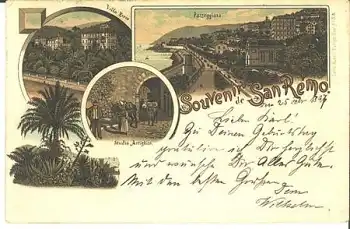 Villa Zirio
Passeggiata
Studio Artistico
Souvenir de San Remo.
Lieber Karl!
Zu Deinem Geburtstag
gratulire ich Dir herzlichst
und wünsche Dir Alles Gute.
Mit den besten Grüßen
Dein
Wilhelm